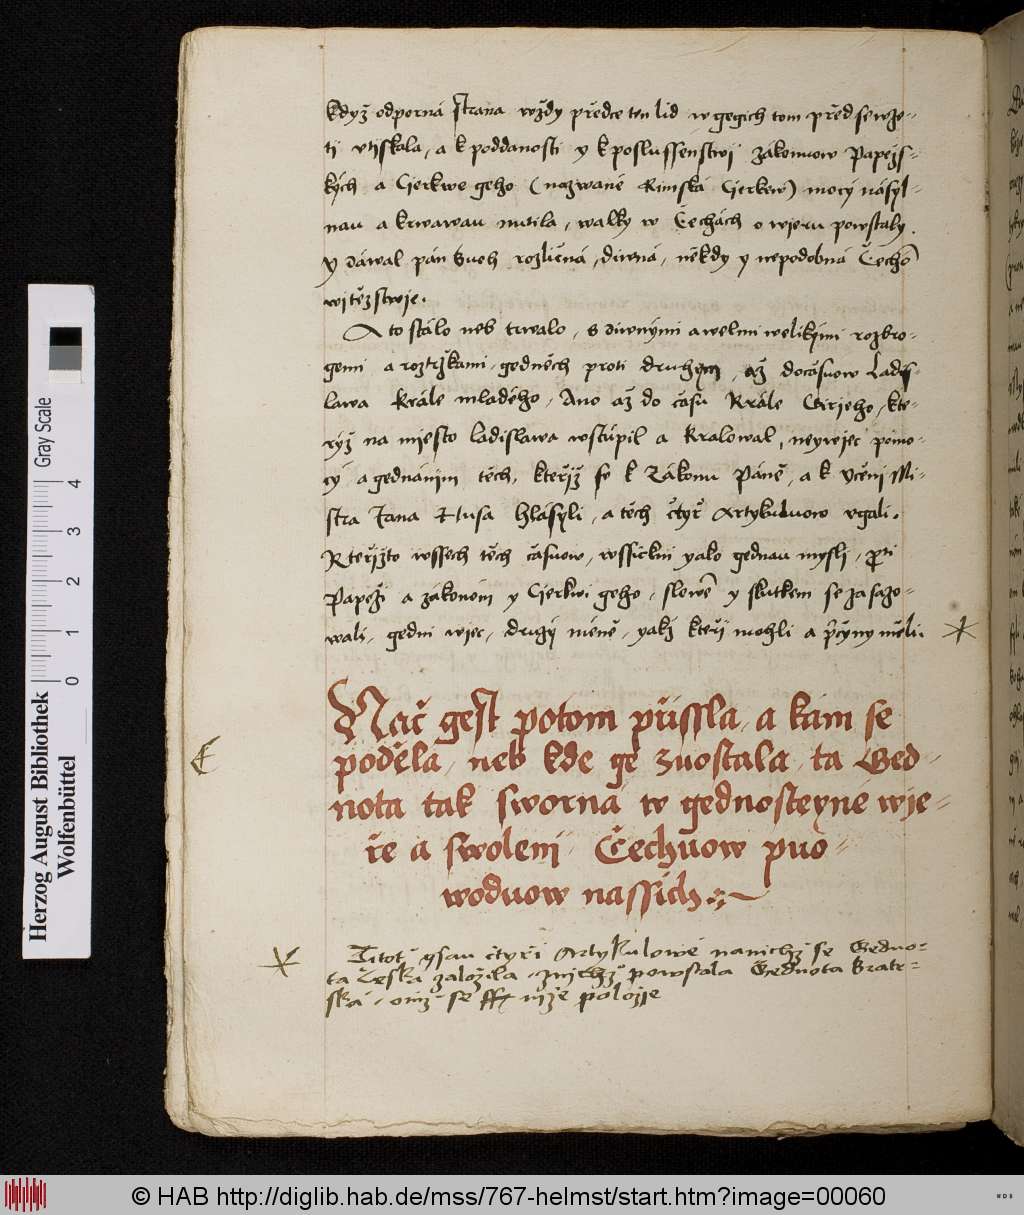 když odporná strana wždy předce ten lid w gegich tom před sewze-
ti vtiskala, a k poddanosti y k poslussenstwj zákonuow Papežs-
kých a Cierkwe geho (nazwané Rimská Cierkew) mocý násyl-
nau a krwawau nutila, walky w Čechách o wieru powstaly.
y dáwal pán Buoh rozličná, diwná, někdy y nepodobná Čechom
witězstwje.
A to stálo neb trwalo, s diwnými a welmi welikými rozbro-
gemi a roztržkami, gedněch proti druhým, až do časuow Ladis-
lawa krále mladého, Ano až do času Krále Girjeho, kte-
rýž na mjesto ladislawa wstúpil a kralowal, neywiec pomo-
cý a gednáním těch, kteřiž se k Zákonu Páně, a k včení Mi-
stra Jana Husa hlásyli, a těch čtyř Artykuluow vgali.
Kteřižto wssech těch časuow, wssickni yako gednau myslj, proti
Papeži a zákonóm y Cierkwi geho, slowem y skutkem se zasazo-
wali, gedni wiec, druzý méně, yakž kteří mohli a přčyny měli.
Nač gest potom přissla, a kam se
poděla, neb kde ge zuostala, ta Ged-
nota tak sworná w gednosteyne wje-
ře a swolenj Čechuow puo-
woduow nassich
Titoť gsau čtyři Artykulowé na nichž se Gedno-
ta Česká založila, z nichžť powstala Gednota Bratr-
ská, njže položje
Herzog August Bibliothek
Wolfenbüttel
0 1 2 3 4
Gray Scale
© HAB http://diglib.hab.de/mss/767-helmst/start.htm?image=00060
WDB